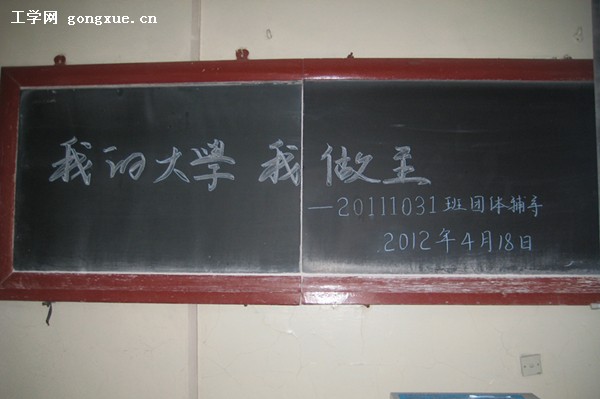 工学网 gongxue.cn
我的大學 我做主
—20111031班团体辅导
2012年4月18日